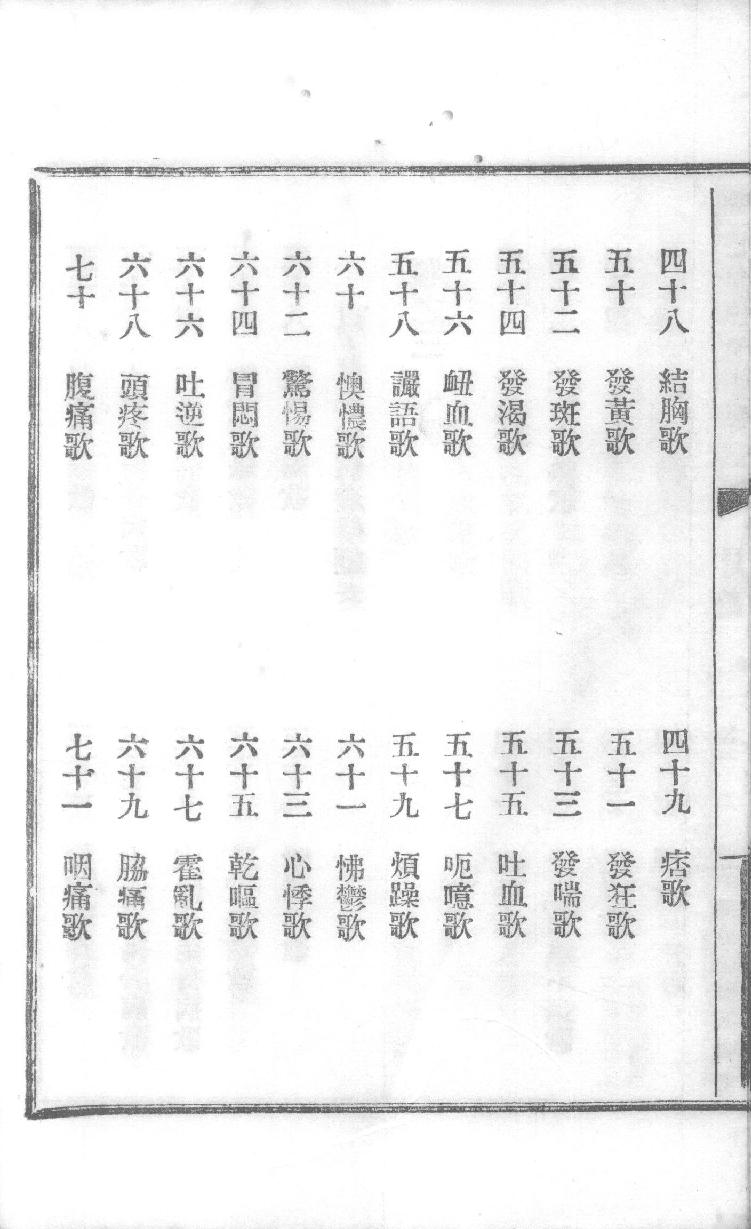 四十八 結胸歌 四十九 痞歌
五十 發黃歌 五十一 發狂歌
五十二 發斑歌 五十三 發喘歌
五十四 發渴歌 五十五 吐血歌
五十六 衄血歌 五十七 呃噫歌
五十八 讝語歌 五十九 煩躁歌
六十 懊憹歌 六十一 怫鬱歌
六十二 驚惕歌 六十三 心悸歌
六十四 冒悶歌 六十五 乾嘔歌
六十六 吐逆歌 六十七 霍亂歌
六十八 頭疼歌 六十九 脇痛歌
七十 腹痛歌 七十一 咽痛歌